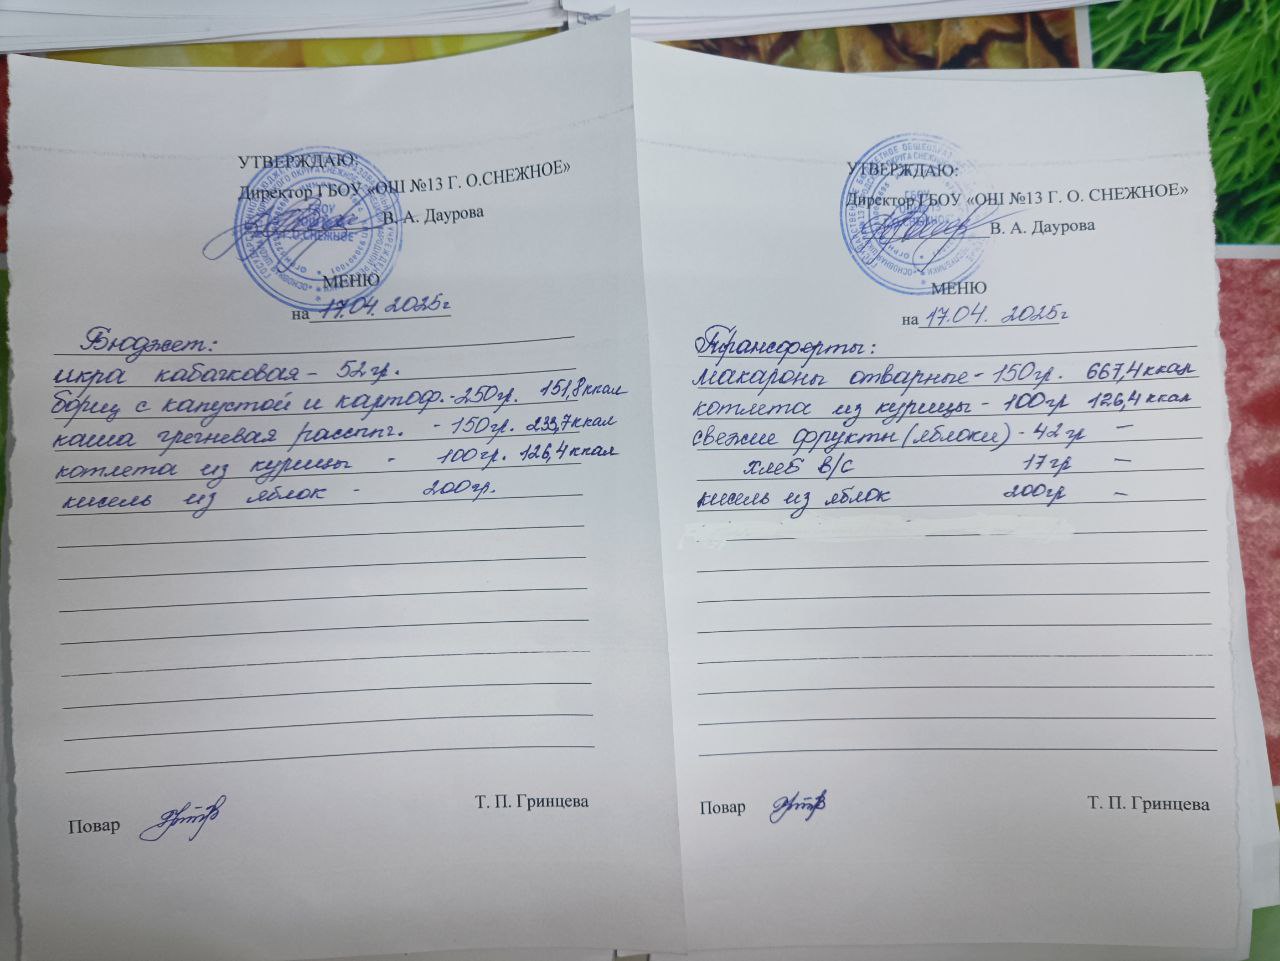 УТВЕРЖДАЮ:
Директор ГБОУ «ОШ №13 Г. О.СНЕЖНОЕ»
В. А. Даурова
МЕНЮ
на 17.04. 2025г
Бюджет:
икра кабачковая - 52гр.
борщ с капустой и картоф. - 250гр. 151,8 ккал
каша гречневая рассыпч. - 150гр. 233,7 ккал
котлета из курицы - 100гр. 126,4 ккал
кисель из яблок - 200гр.
Повар
Т. П. Гринцева
УТВЕРЖДАЮ:
Директор ГБОУ «ОШ №13 Г. О. СНЕЖНОЕ»
В. А. Даурова
МЕНЮ
на 17.04. 2025г
Трансферты:
макароны отварные - 150гр. 667,4 ккал
котлета из курицы - 100гр 126,4 ккал
свежие фрукты (яблоки) - 42гр —
хлеб в/с 17гр —
кисель из яблок 200гр —
Повар
Т. П. Гринцева